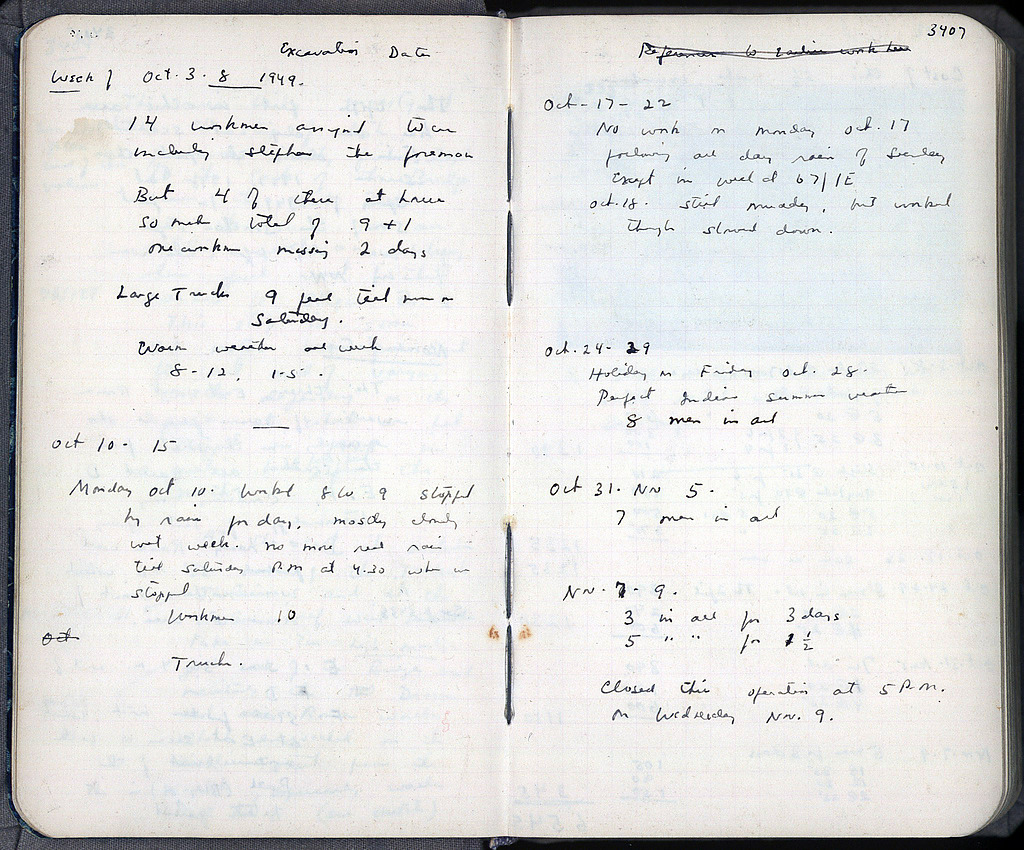 Excavation Data
Week of Oct. 3. 8 1949.
14 workmen assigned to us
including Stephan the foreman
But 4 of these at house
so men total of 9 + 1
one workman missing 2 days
Large Trucks 9 full till noon on
Saturday.
Warm weather all week
8-12, 1-5.
Oct 10 - 15
Monday Oct 10. Worked 8 to 9 stopped
by rain for day, mostly cloudy
wet week. no more real rain
till Saturday P.M at 4.30 when we
stopped
Workmen 10
Oct
Trucks.
3407
References to Earlier work here
Oct - 17 - 22
No work on Monday Oct. 17
following all day rain of Sunday
Except in well at 67/1E
Oct. 18. still muddy, but worked
though slowed down.
Oct. 24 - 29
Holiday on Friday Oct. 28.
Perfect Indian summer weather
8 men in all
Oct 31. Nov 5.
7 men in all
Nov. 7 9.
3 in all for 3 days.
5 " " for 1 ½
Closed this operation at 5 P.M.
on Wednesday Nov. 9.